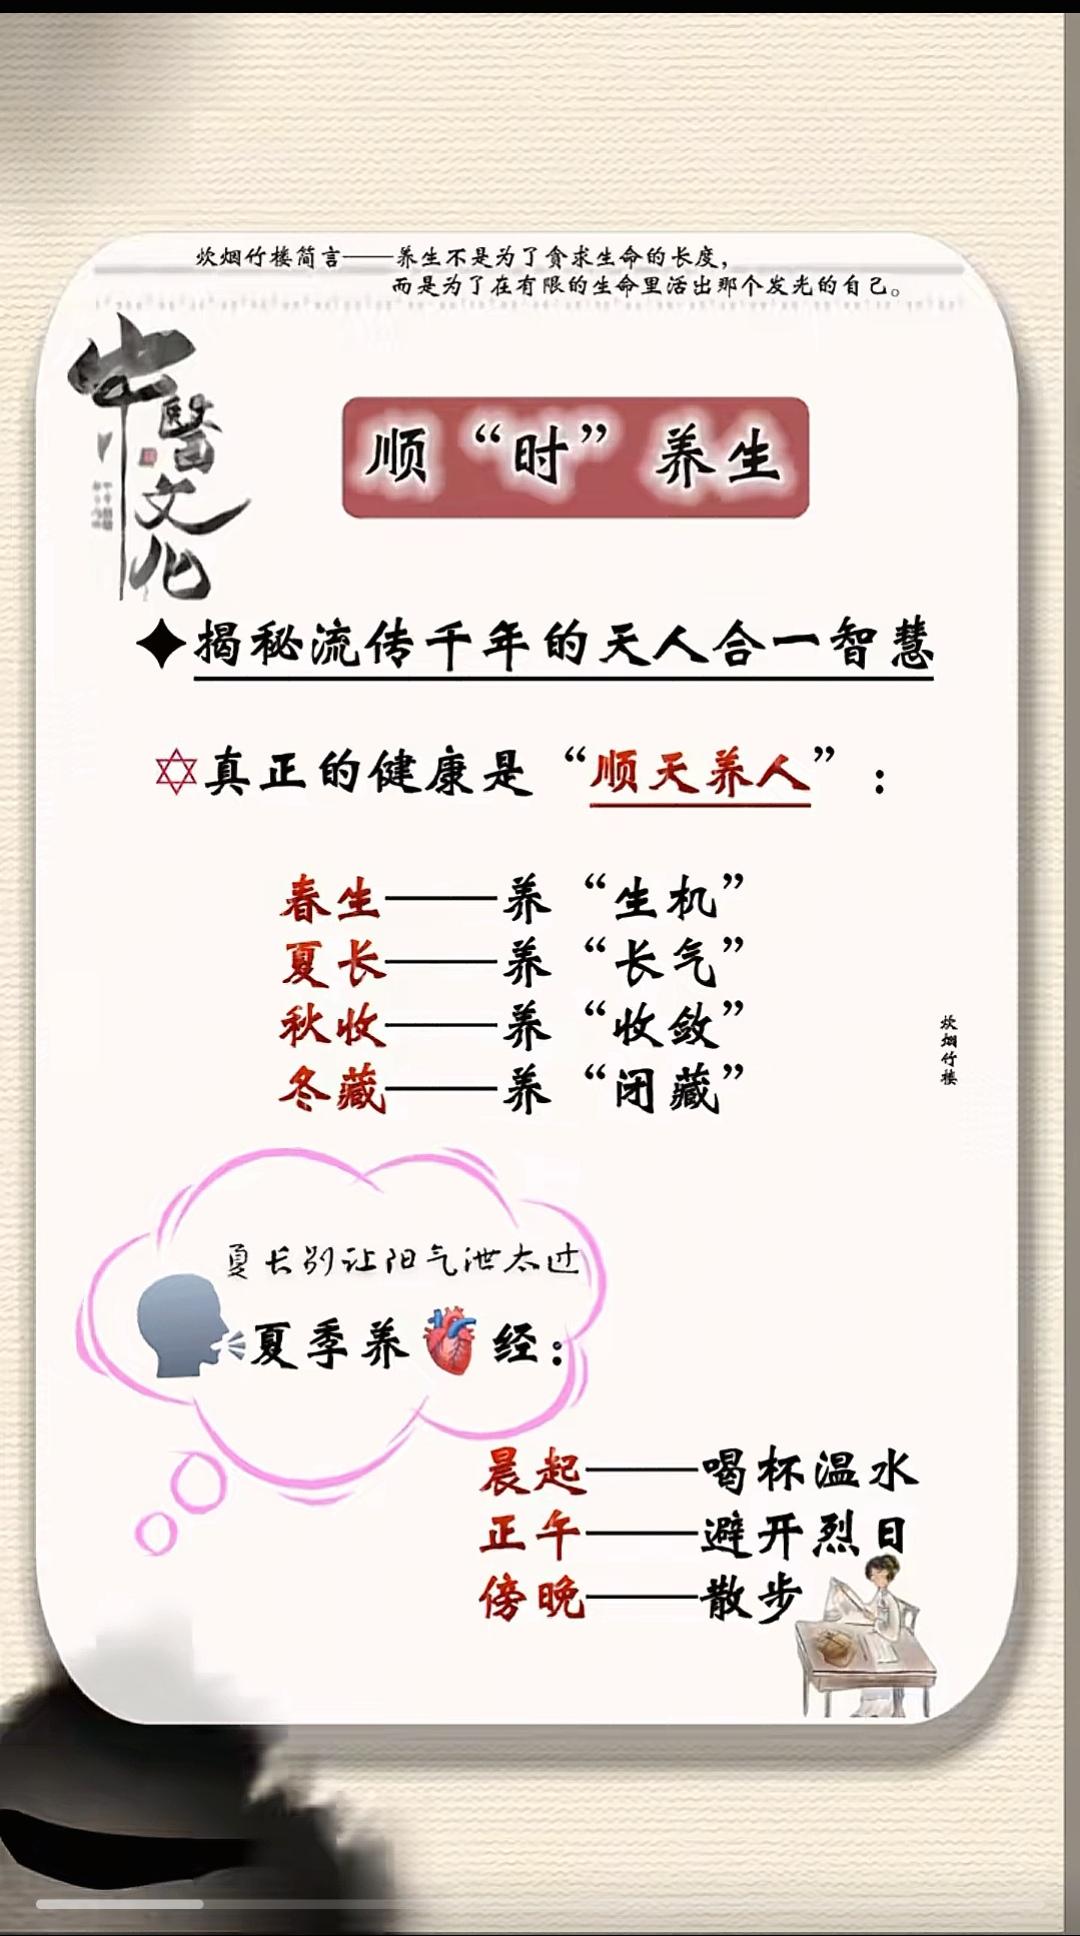 炊烟竹楼简言——养生不是为了贪求生命的长度，
而是为了在有限的生命里活出那个发光的自己。
中醫文化
顺“时”养生
揭秘流传千年的天人合一智慧
真正的健康是“顺天养人”：
春生——养“生机”
夏长——养“长气”
秋收——养“收敛”
冬藏——养“闭藏”
炊烟竹楼
夏长别让阳气泄太过
夏季养经：
晨起——喝杯温水
正午——避开烈日
傍晚——散步